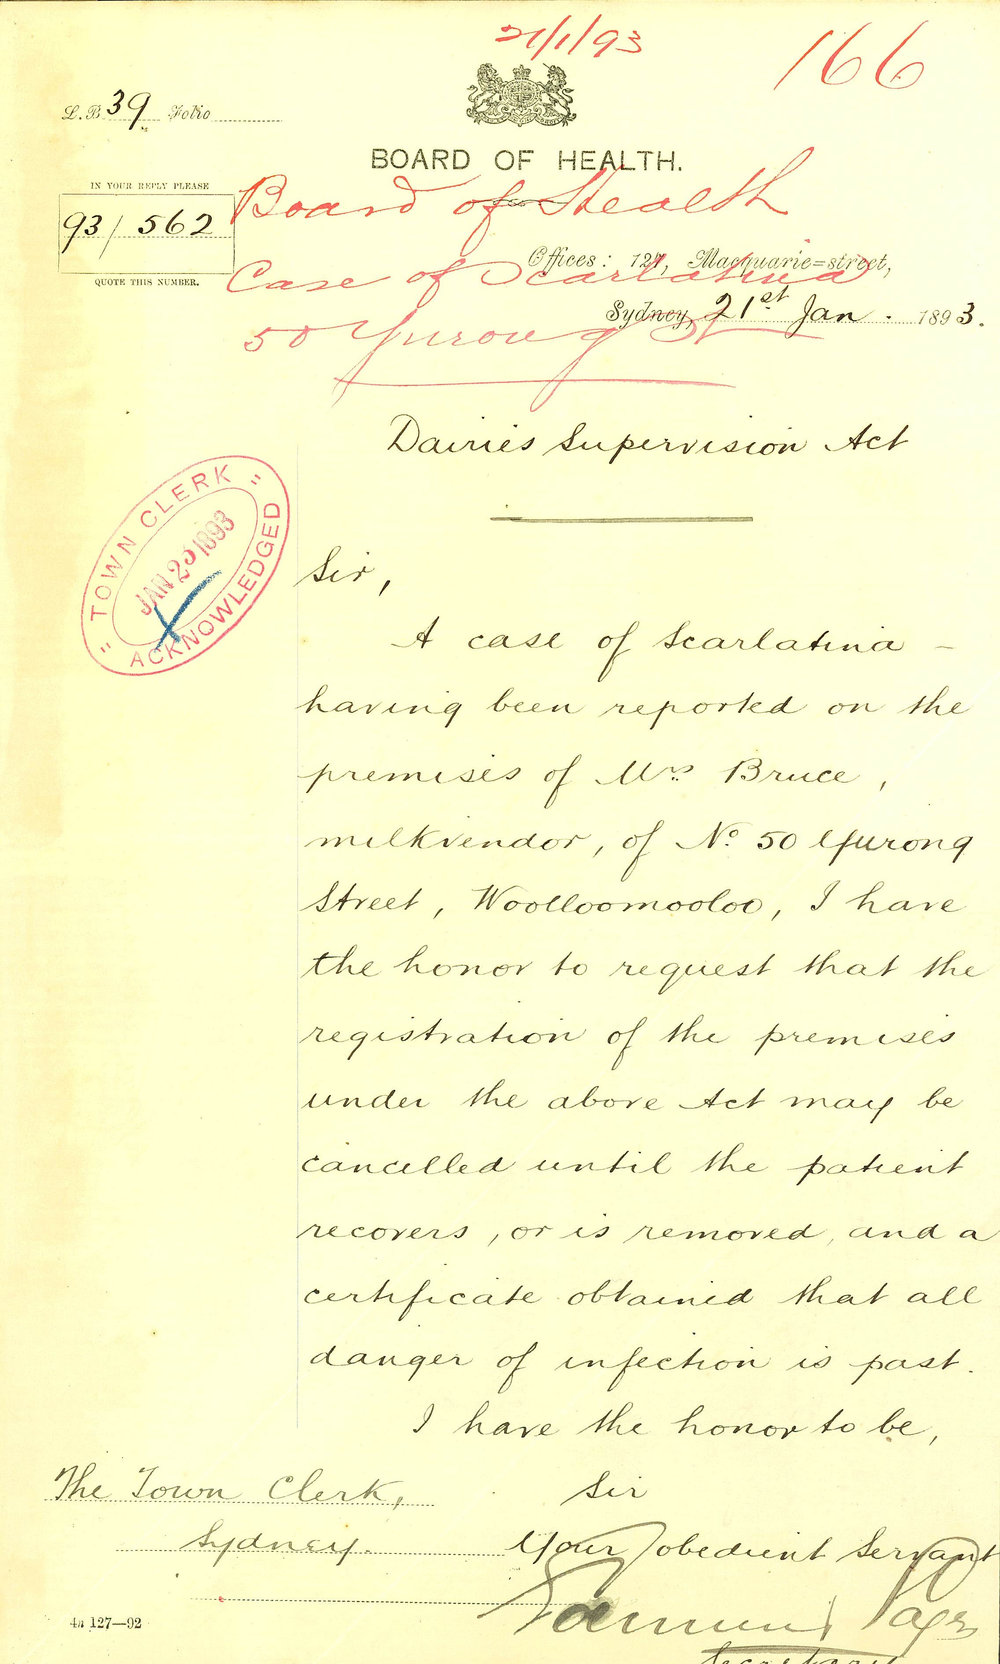 21/1/93
166
L.B. 39 Folio
BOARD OF HEALTH.
IN YOUR REPLY PLEASE
93/562
QUOTE THIS NUMBER.
Board of Health
Offices: 127, Macquarie=street,
Case of Scarlatina
Sydney, 21st Jan. 1893.
50 Yurong St
Dairies Supervision Act
"TOWN CLERK"
JAN 25 1893
ACKNOWLEDGED
Sir,
A case of Scarlatina –
having been reported on the
premises of Mrs Bruce,
milkvendor, of No. 50 Yurong
Street, Woolloomooloo, I have
the honor to request that the
registration of the premises
under the above Act may be
cancelled until the patient
recovers, or is removed, and a
certificate obtained that all
danger of infection is past.
I have the honor to be,
The Town Clerk,
Sir
Sydney.
Your obedient Servant
Edmund Sager
Secretary
127—92